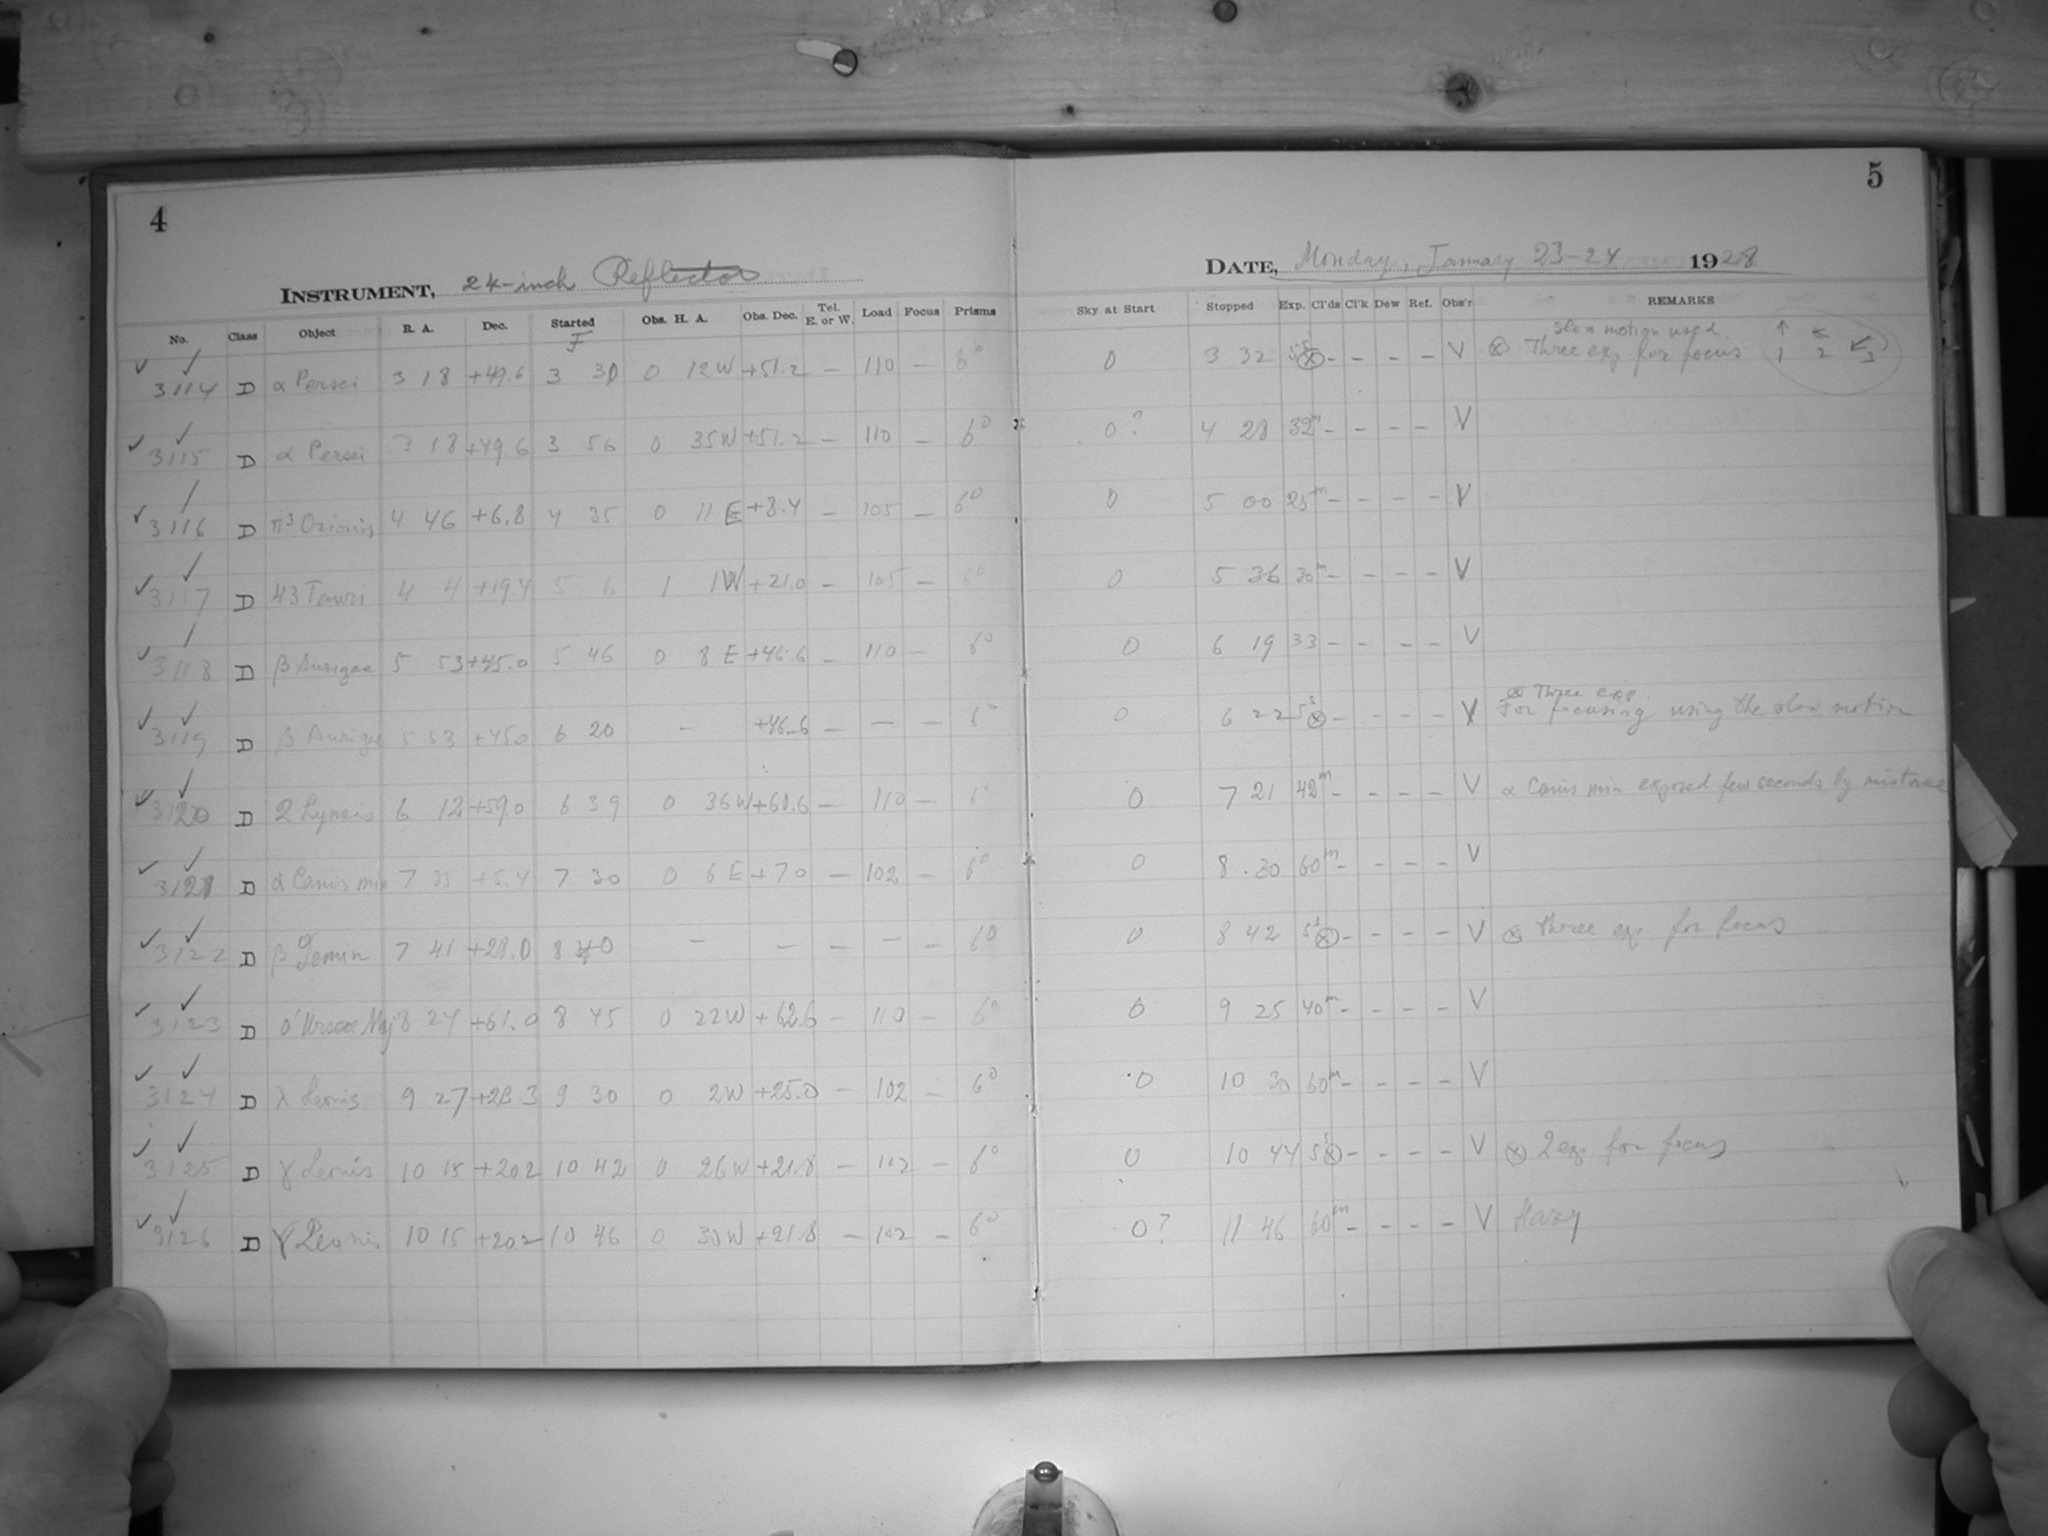 4
INSTRUMENT, 24-inch Reflector
No. Class Object R. A. Dec. Started Obs. H. A. Obs. Dec. Tel. E. or W. Load Focus Prisms
3114 D α Persei 3 18 +49.6 3 30 0 12W +51.2 – 110 – 6°
3115 D α Persei 3 18 +49.6 3 56 0 35W +51.2 – 110 – 6°
3116 D π³ Orionis 4 46 +6.8 4 35 0 11 E +8.4 – 105 – 6°
3117 D 43 Tauri 4 4 +19.4 5 6 1 1W +21.0 – 105 – 6°
3118 D β Aurigae 5 53 +45.0 5 46 0 8 E +46.6 – 110 – 6°
3119 D β Aurigae 5 53 +45.0 6 20 – +46.6 – – – 6°
3120 D 2 Lyncis 6 12 +59.0 6 39 0 36W +60.6 – 110 – 6°
3121 D α Canis min 7 35 +5.4 7 30 0 6 E +7.0 – 102 – 6°
3122 D β Gemin 7 41 +28.0 8 40 – – – – – 6°
3123 D o' Ursae Maj 8 24 +61.0 8 45 0 22W +62.6 – 110 – 6°
3124 D λ Leonis 9 27 +23.3 9 30 0 2W +25.0 – 102 – 6°
3125 D γ Leonis 10 15 +20.2 10 42 0 26W +21.8 – 102 – 6°
3126 D γ Leonis 10 15 +20.2 10 46 0 30W +21.8 – 102 – 6°
5
DATE, Monday, January 23-24 1928
Sky at Start Stopped Exp. Cl'ds Cl'k Dew Ref. Obs'r REMARKS
slow motion used
0 3 32 5s ⊗ – – – – V ⊗ Three exp for focus ↑ 1 ← 2 ↙ 3
0? 4 28 32m – – – – V
0 5 00 25m – – – – V
0 5 36 30m – – – – V
0 6 19 33 – – – – V
⊗ Three exp.
0 6 22 5s ⊗ – – – – V For focusing using the slow motion
0 7 21 42m – – – – V α Canis min exposed few seconds by mistake
0 8 30 60m – – – – V
0 8 42 5s ⊗ – – – – V ⊗ three exp. for focus
0 9 25 40m – – – – V
0 10 30 60m – – – – V
0 10 44 5s ⊗ – – – – V ⊗ 2 exp for focus
0? 11 46 60m – – – – V Hazy